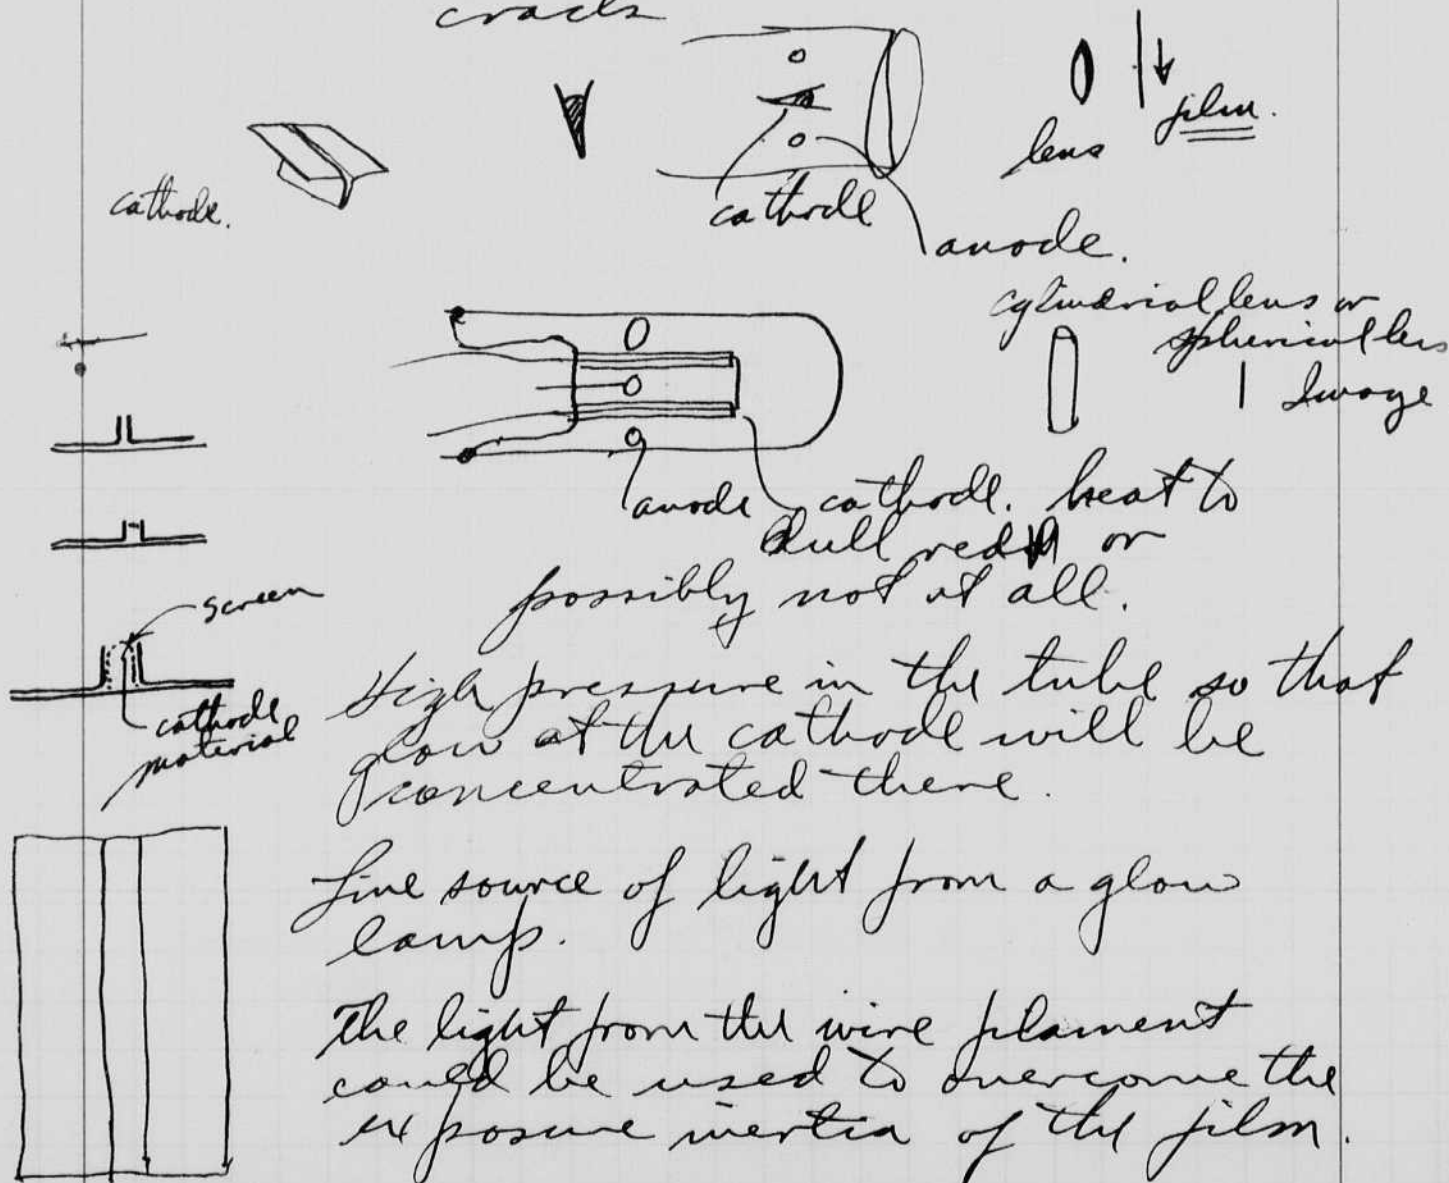 cracks
film.
lens
cathode.
cathode
anode.
cylindrical lens or
spherical lens
Image
anode cathode. heat to
dull red or
possibly not at all.
screen
cathode
material
High pressure in the tube so that
glow at the cathode will be
concentrated there.
Line source of light from a glow
lamp.
The light from the wire filament
could be used to overcome the
exposure inertia of the film.